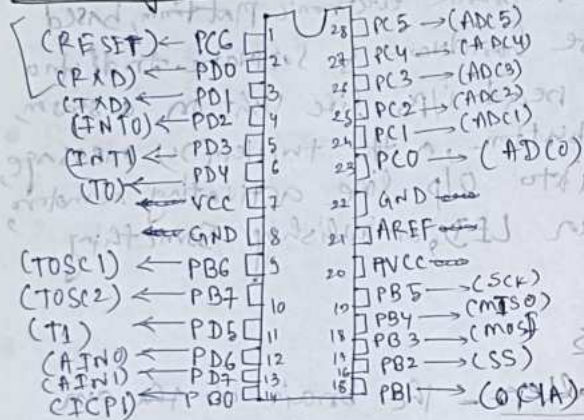 (RESET) ← PC6 1
(RXD) ← PD0 2
(TXD) ← PD1 3
(INT0) ← PD2 4
(INT1) ← PD3 5
(T0) ← PD4 6
VCC 7
GND 8
(TOSC1) ← PB6 9
(TOSC2) ← PB7 10
(T1) ← PD5 11
(AIN0) ← PD6 12
(AIN1) ← PD7 13
(ICP1) ← PB0 14
28 PC5 → (ADC5)
27 PC4 → (ADC4)
26 PC3 → (ADC3)
25 PC2 → (ADC2)
24 PC1 → (ADC1)
23 PC0 → (ADC0)
22 GND
21 AREF
20 AVCC
19 PB5 → (SCK)
18 PB4 → (MISO)
PB3 → (MOSI
16 PB2 → (SS)
PB1 → (OC1A)